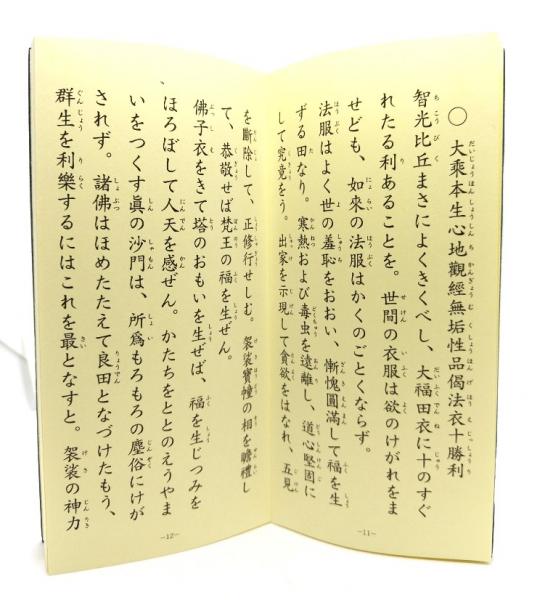 ○ 大乘本生心地觀經無垢性品偈法衣十勝利
智光比丘まさによくきくべし、大福田衣に十のすぐ
れたる利あることを。世間の衣服は欲のけがれをま
せども、如來の法服はかくのごとくならず。
法服はよく世の羞恥をおおい、慚愧圓滿して福を生
ずる田なり。寒熱および毒虫を遠離し、道心堅固に
して究竟をう。出家を示現して貪欲をはなれ、五見
―11―
を斷除して、正修行せしむ。袈裟寶幢の相を瞻禮し
て、恭敬せば梵王の福を生ぜん。
佛子衣をきて塔のおもいを生ぜば、福を生じつみを
ほろぼして人天を感ぜん。かたちをととのえうやま
いをつくす眞の沙門は、所爲もろもろの塵俗にけが
されず。諸佛はほめたたえて良田となづけたもう、
群生を利樂するにはこれを最となすと。袈裟の神力
―12―